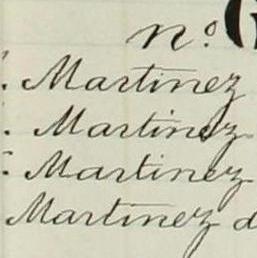 no. G
Martinez
Martinez
Martinez
Martinez d